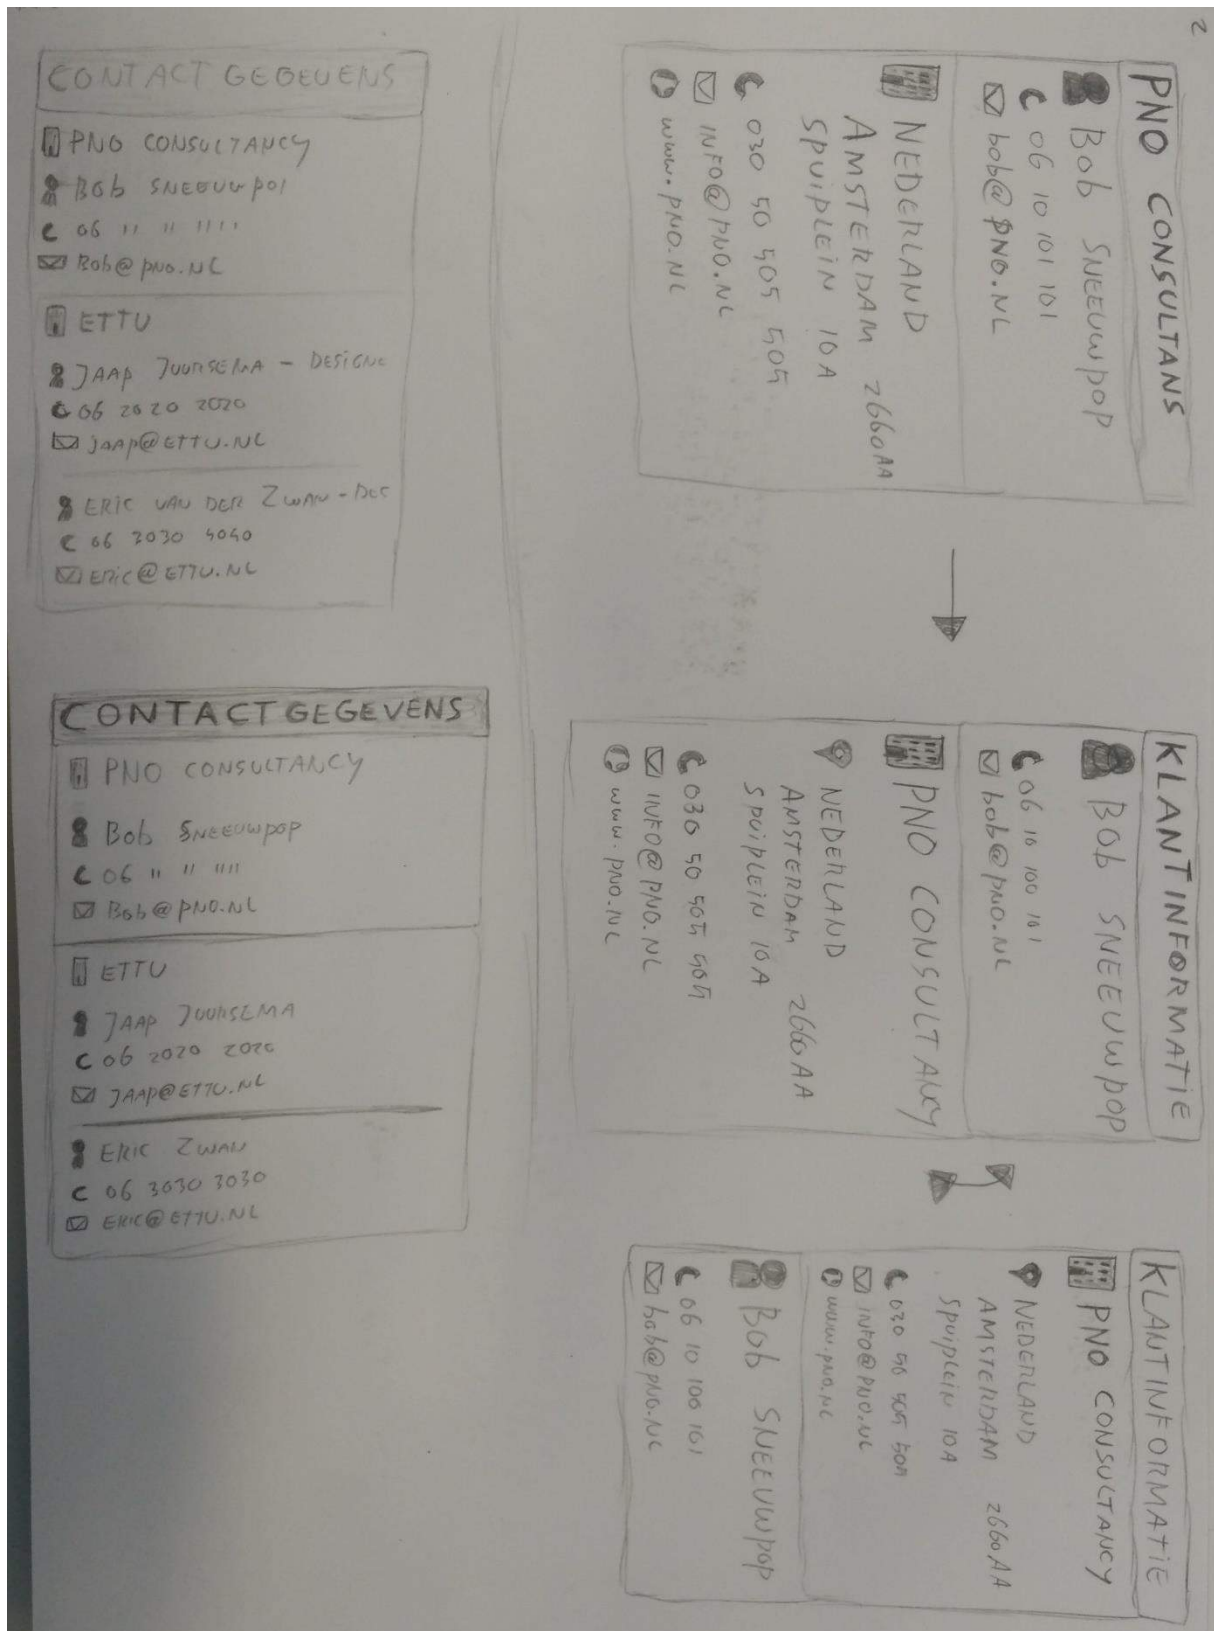 2
CONTACT GEGEVENS
PNO CONSULTANCY
Bob SNEEUWPOP
06 " " ""
Bob@PNO.NL
ETTU
JAAP JUURSEMA - DESIGNE
06 2020 2020
jAAP@ETTU.NL
ERIC VAN DER ZWAN - DES
06 3030 4040
ERIC@ETTU.NL
CONTACTGEGEVENS
PNO CONSULTANCY
Bob SNEEUWPOP
06 " " ""
Bob@PNO.NL
ETTU
JAAP JUURSEMA
06 2020 2020
JAAP@ETTU.NL
ERIC ZWAN
06 3030 3030
ERIC@ETTU.NL
PNO CONSULTANS
Bob SNEEUWPOP
06 10 101 101
bob@PNO.NL
NEDERLAND
AMSTERDAM 2660AA
SPUIPLEIN 10A
030 50 505 505
INFO@PNO.NL
www.PNO.NL
KLANTINFORMATIE
Bob SNEEUWPOP
06 10 100 101
bob@PNO.NL
PNO CONSULTANCY
NEDERLAND
AMSTERDAM 2660AA
SPUIPLEIN 10A
030 50 505 505
INFO@PNO.NL
www.PNO.NL
KLANTINFORMATIE
PNO CONSULTANCY
NEDERLAND
AMSTERDAM 2660AA
SPUIPLEIN 10A
030 50 505 505
INFO@PNO.NL
www.PNO.NL
Bob SNEEUWPOP
06 10 100 101
bob@PNO.NL